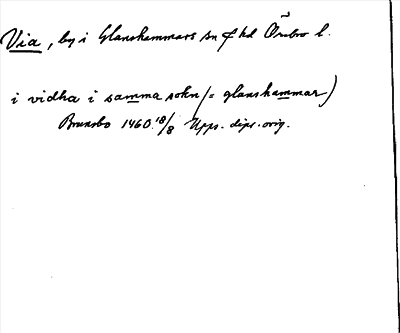 Via, by i Glanshammars sn o hd Örebro l.
i vidha i samma sokn (= glanshammar)
Brunsbo 1460 18/8 Upps. dipl. orig.